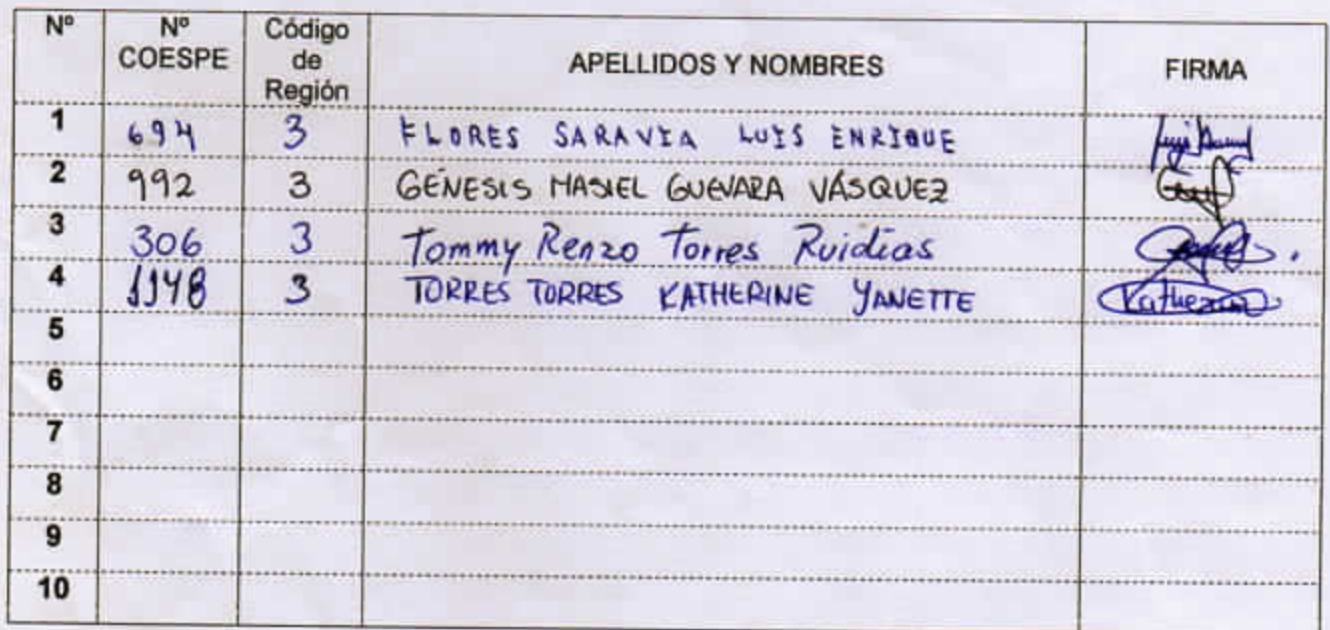 Nº Nº COESPE Código de Región APELLIDOS Y NOMBRES FIRMA
1 694 3 FLORES SARAVIA LUIS ENRIQUE
2 992 3 GÉNESIS MASIEL GUEVARA VÁSQUEZ
3 306 3 Tommy Renzo Torres Ruidias
4 1148 3 TORRES TORRES KATHERINE YANETTE Katherine
5
6
7
8
9
10